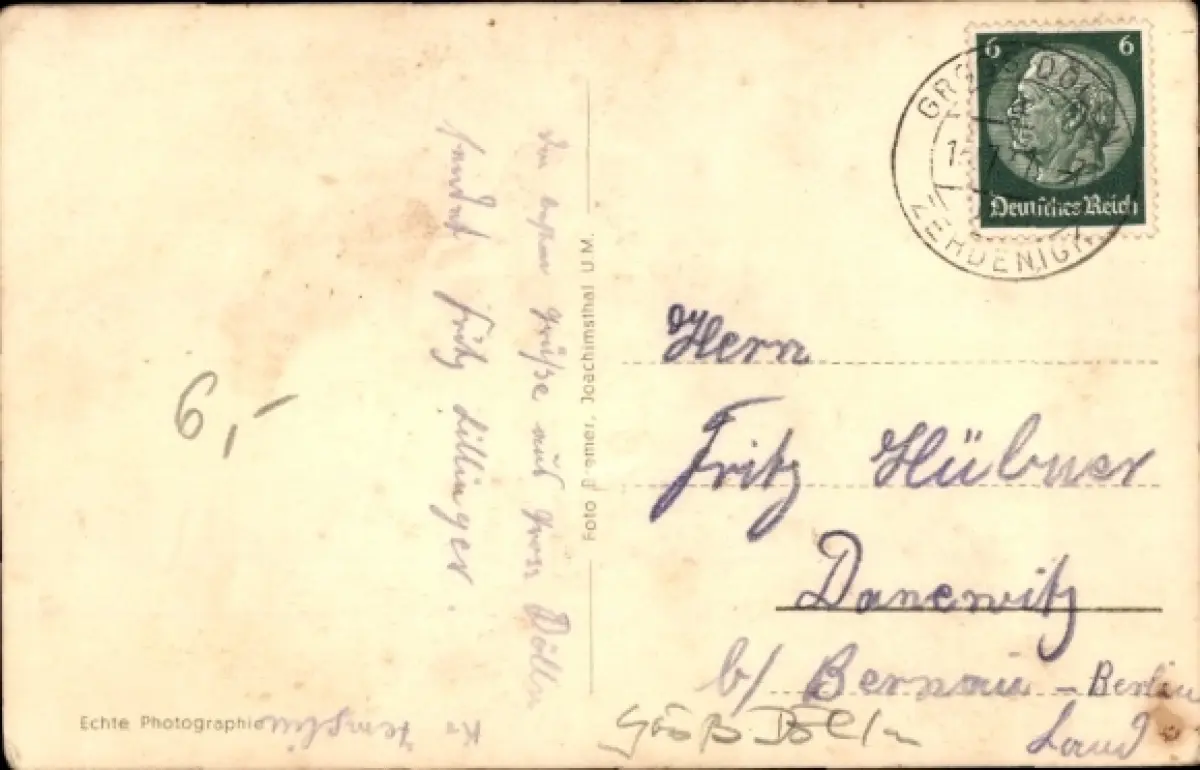 6 6
Deutsches Reich
GROSS DÖLLN
ZEHDENICK
Die besten Grüße aus Gross Dölln
sendet Fritz Dillinger.
Kr. Templin
6,-
Foto Bremer, Joachimsthal U.M.
Herrn
Fritz Hübner
Danewitz
b/ Bernau - Berlin
Land
Groß Dölln
Echte Photographie